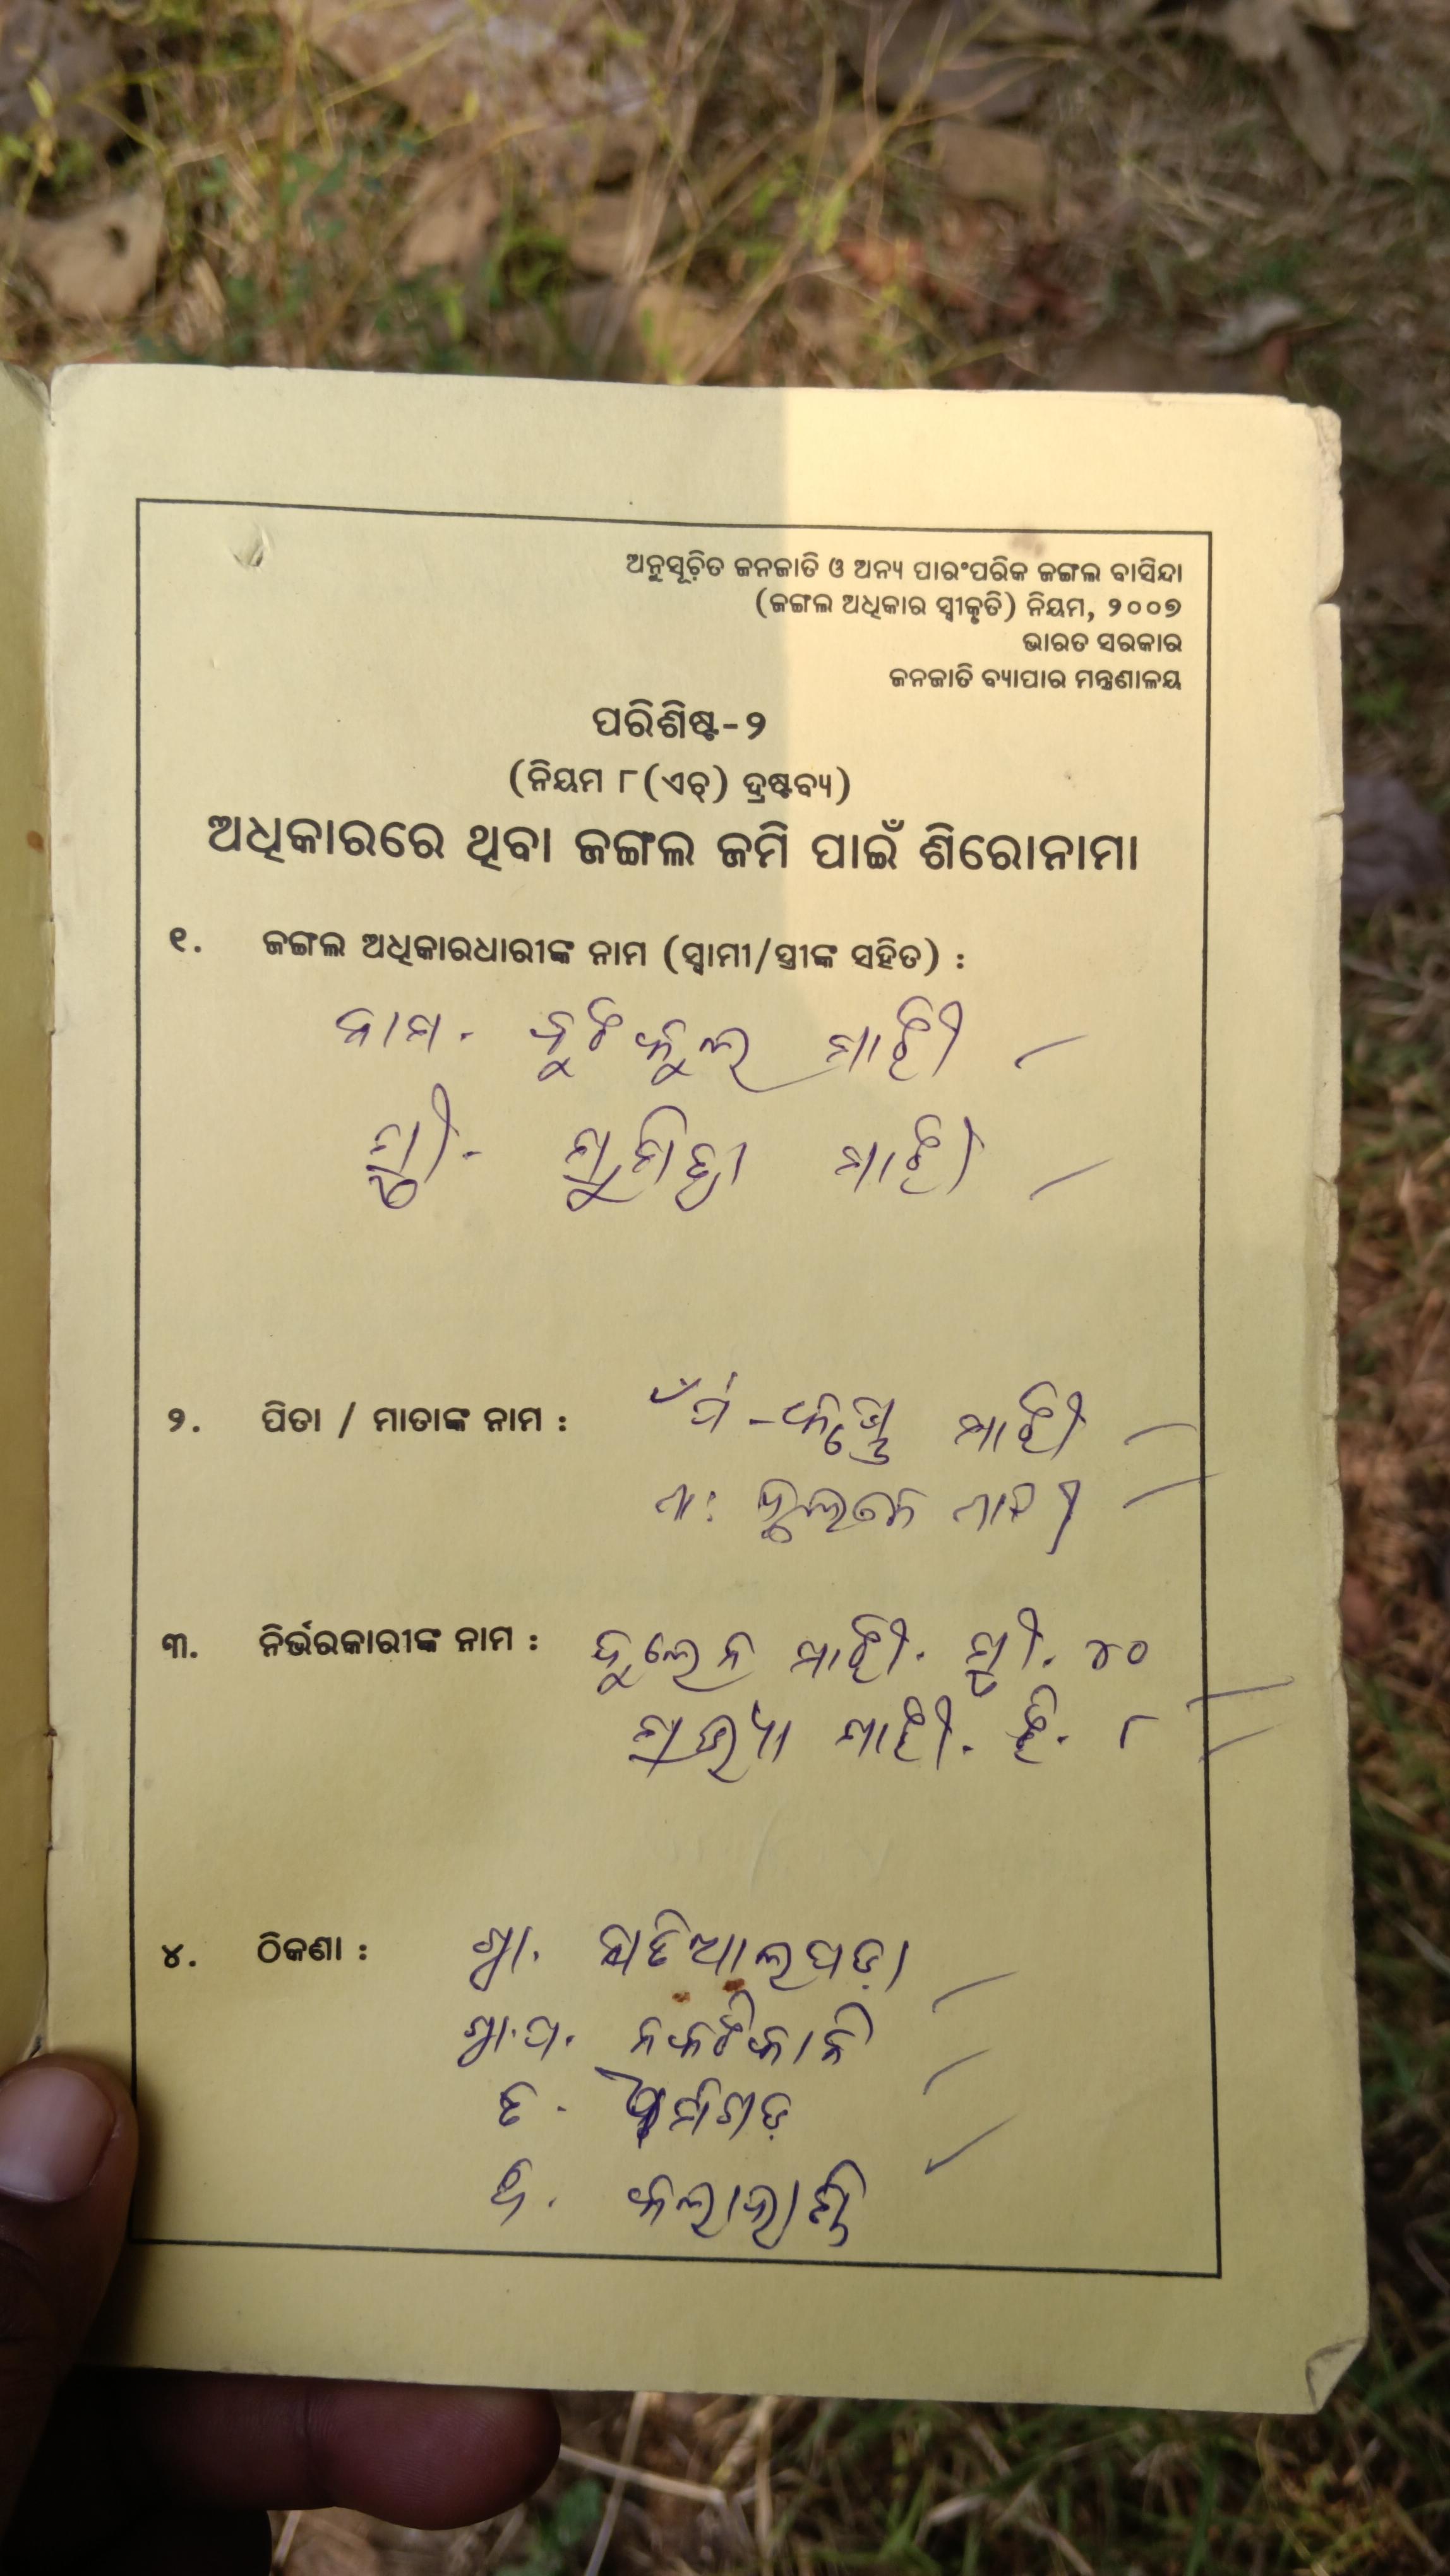 ଅନୁସୂଚିତ ଜନଜାତି ଓ ଅନ୍ୟ ପାରଂପରିକ ଜଙ୍ଗଲ ବାସିନ୍ଦା
(ଜଙ୍ଗଲ ଅଧିକାର ସ୍ୱୀକୃତି) ନିୟମ, ୨୦୦୭
ଭାରତ ସରକାର
ଜନଜାତି ବ୍ୟାପାର ମନ୍ତ୍ରଣାଳୟ
ପରିଶିଷ୍ଟ-୨
(ନିୟମ ୮(ଏଚ୍) ଦ୍ରଷ୍ଟବ୍ୟ)
ଅଧିକାରରେ ଥିବା ଜଙ୍ଗଲ ଜମି ପାଇଁ ଶିରୋନାମା
୧. ଜଙ୍ଗଲ ଅଧିକାରଧାରୀଙ୍କ ନାମ (ସ୍ୱାମୀ/ସ୍ତ୍ରୀଙ୍କ ସହିତ) :
ନାମ. ମାଝୀ
ସ୍ତ୍ରୀ- ସୁମିତ୍ରା ମାଝୀ
୨. ପିତା / ମାତାଙ୍କ ନାମ : ମାଝୀ
ମା:
୩. ନିର୍ଭରକାରୀଙ୍କ ନାମ : ମାଝୀ. ସ୍ତ୍ରୀ. ୪୦
ମାଝୀ. ଝି. ୮
୪. ଠିକଣା : ଗ୍ରା.
ଗ୍ରା.ପ. ନକଟିକାନି
ତ.
ଜି. କଳାହାଣ୍ଡି